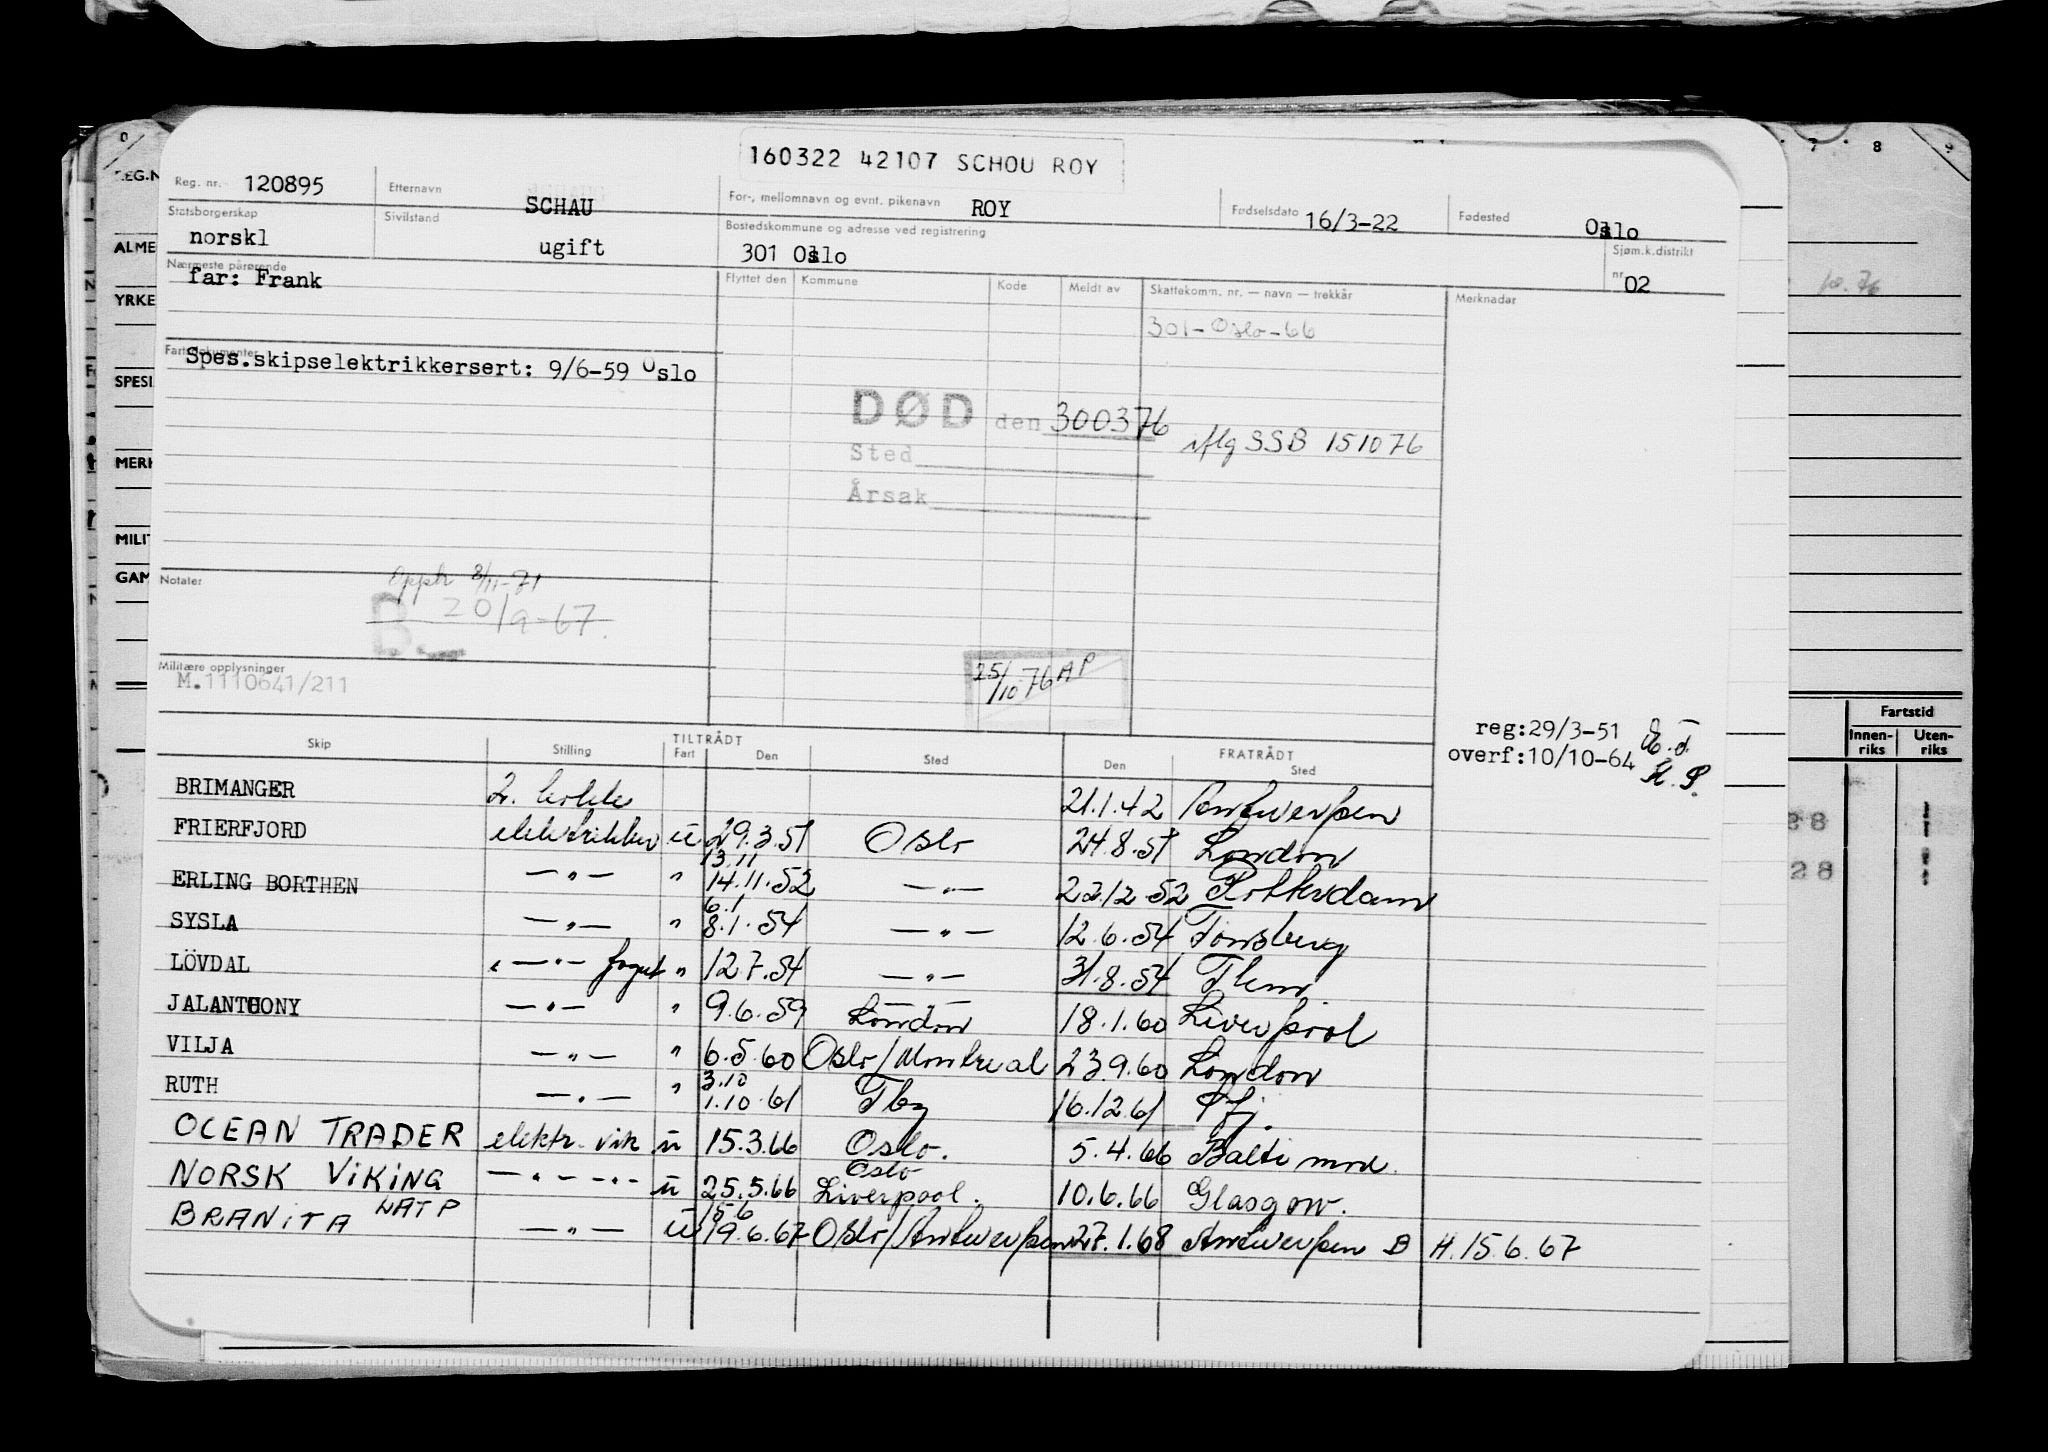 160322 42107 SCHOU ROY
Reg. nr. 120895 Etternavn SCHAU For-, mellomnavn og evnt. pikenavn ROY Fødselsdato 16/3-22 Fødested Oslo
Statsborgerskap norskl Sivilstand ugift Bostedskommune og adresse ved registrering 301 Oslo Sjøm.k.distrikt nr. 02
Nærmeste pårørende far: Frank Flyttet den Kommune Kode Meldt av Skattekomm. nr. — navn — trekkår Merknader
301-Oslo-66
Fartsdokumenter Spes.skipselektrikkersert: 9/6-59 Oslo
DØD den 300376 iflg SSB 151076
Sted
Årsak
Notater
Opph 8/11-71
B. 20/9-67.
Militære opplysninger
M.1110641/211
25/10.76 AP
reg:29/3-51
overf:10/10-64
Skip Stilling TILTRÅDT Fart Den Sted FRATRÅDT Den Sted
BRIMANGER 21.1.42 Antwerpen
FRIERFJORD elektrikker u 29.3.51 Oslo 24.8.51 London
13.11
ERLING BORTHEN —"— " 14.11.52 —"— 22.12.52 Rotterdam
6.1
SYSLA —"— " 8.1.54 —"— 12.6.54 Tønsberg
LÖVDAL —"— " 12.7.54 —"— 31.8.54
JALANTHONY —"— " 9.6.59 London 18.1.60 Liverpool
VILJA —"— " 6.5.60 Oslo/Montreal 23.9.60 London
3.10
RUTH —"— " 1.10.61 Tbg 16.12.61
OCEAN TRADER elektr. vik u 15.3.66 Oslo. 5.4.66 Baltimore.
Oslo
NORSK VIKING —"— —"— u 25.5.66 Liverpool. 10.6.66 Glasgow.
15.6
BRANITA NATP —"— u 19.6.67 Oslo/Antwerpen 27.1.68 Antwerpen B H.15.6.67
REG.N
ALME
YRKE
SPESI
MERK
MILIT
GAM
0
7 8 9
10.76
Fartstid
Innen-riks Uten-riks
28
28